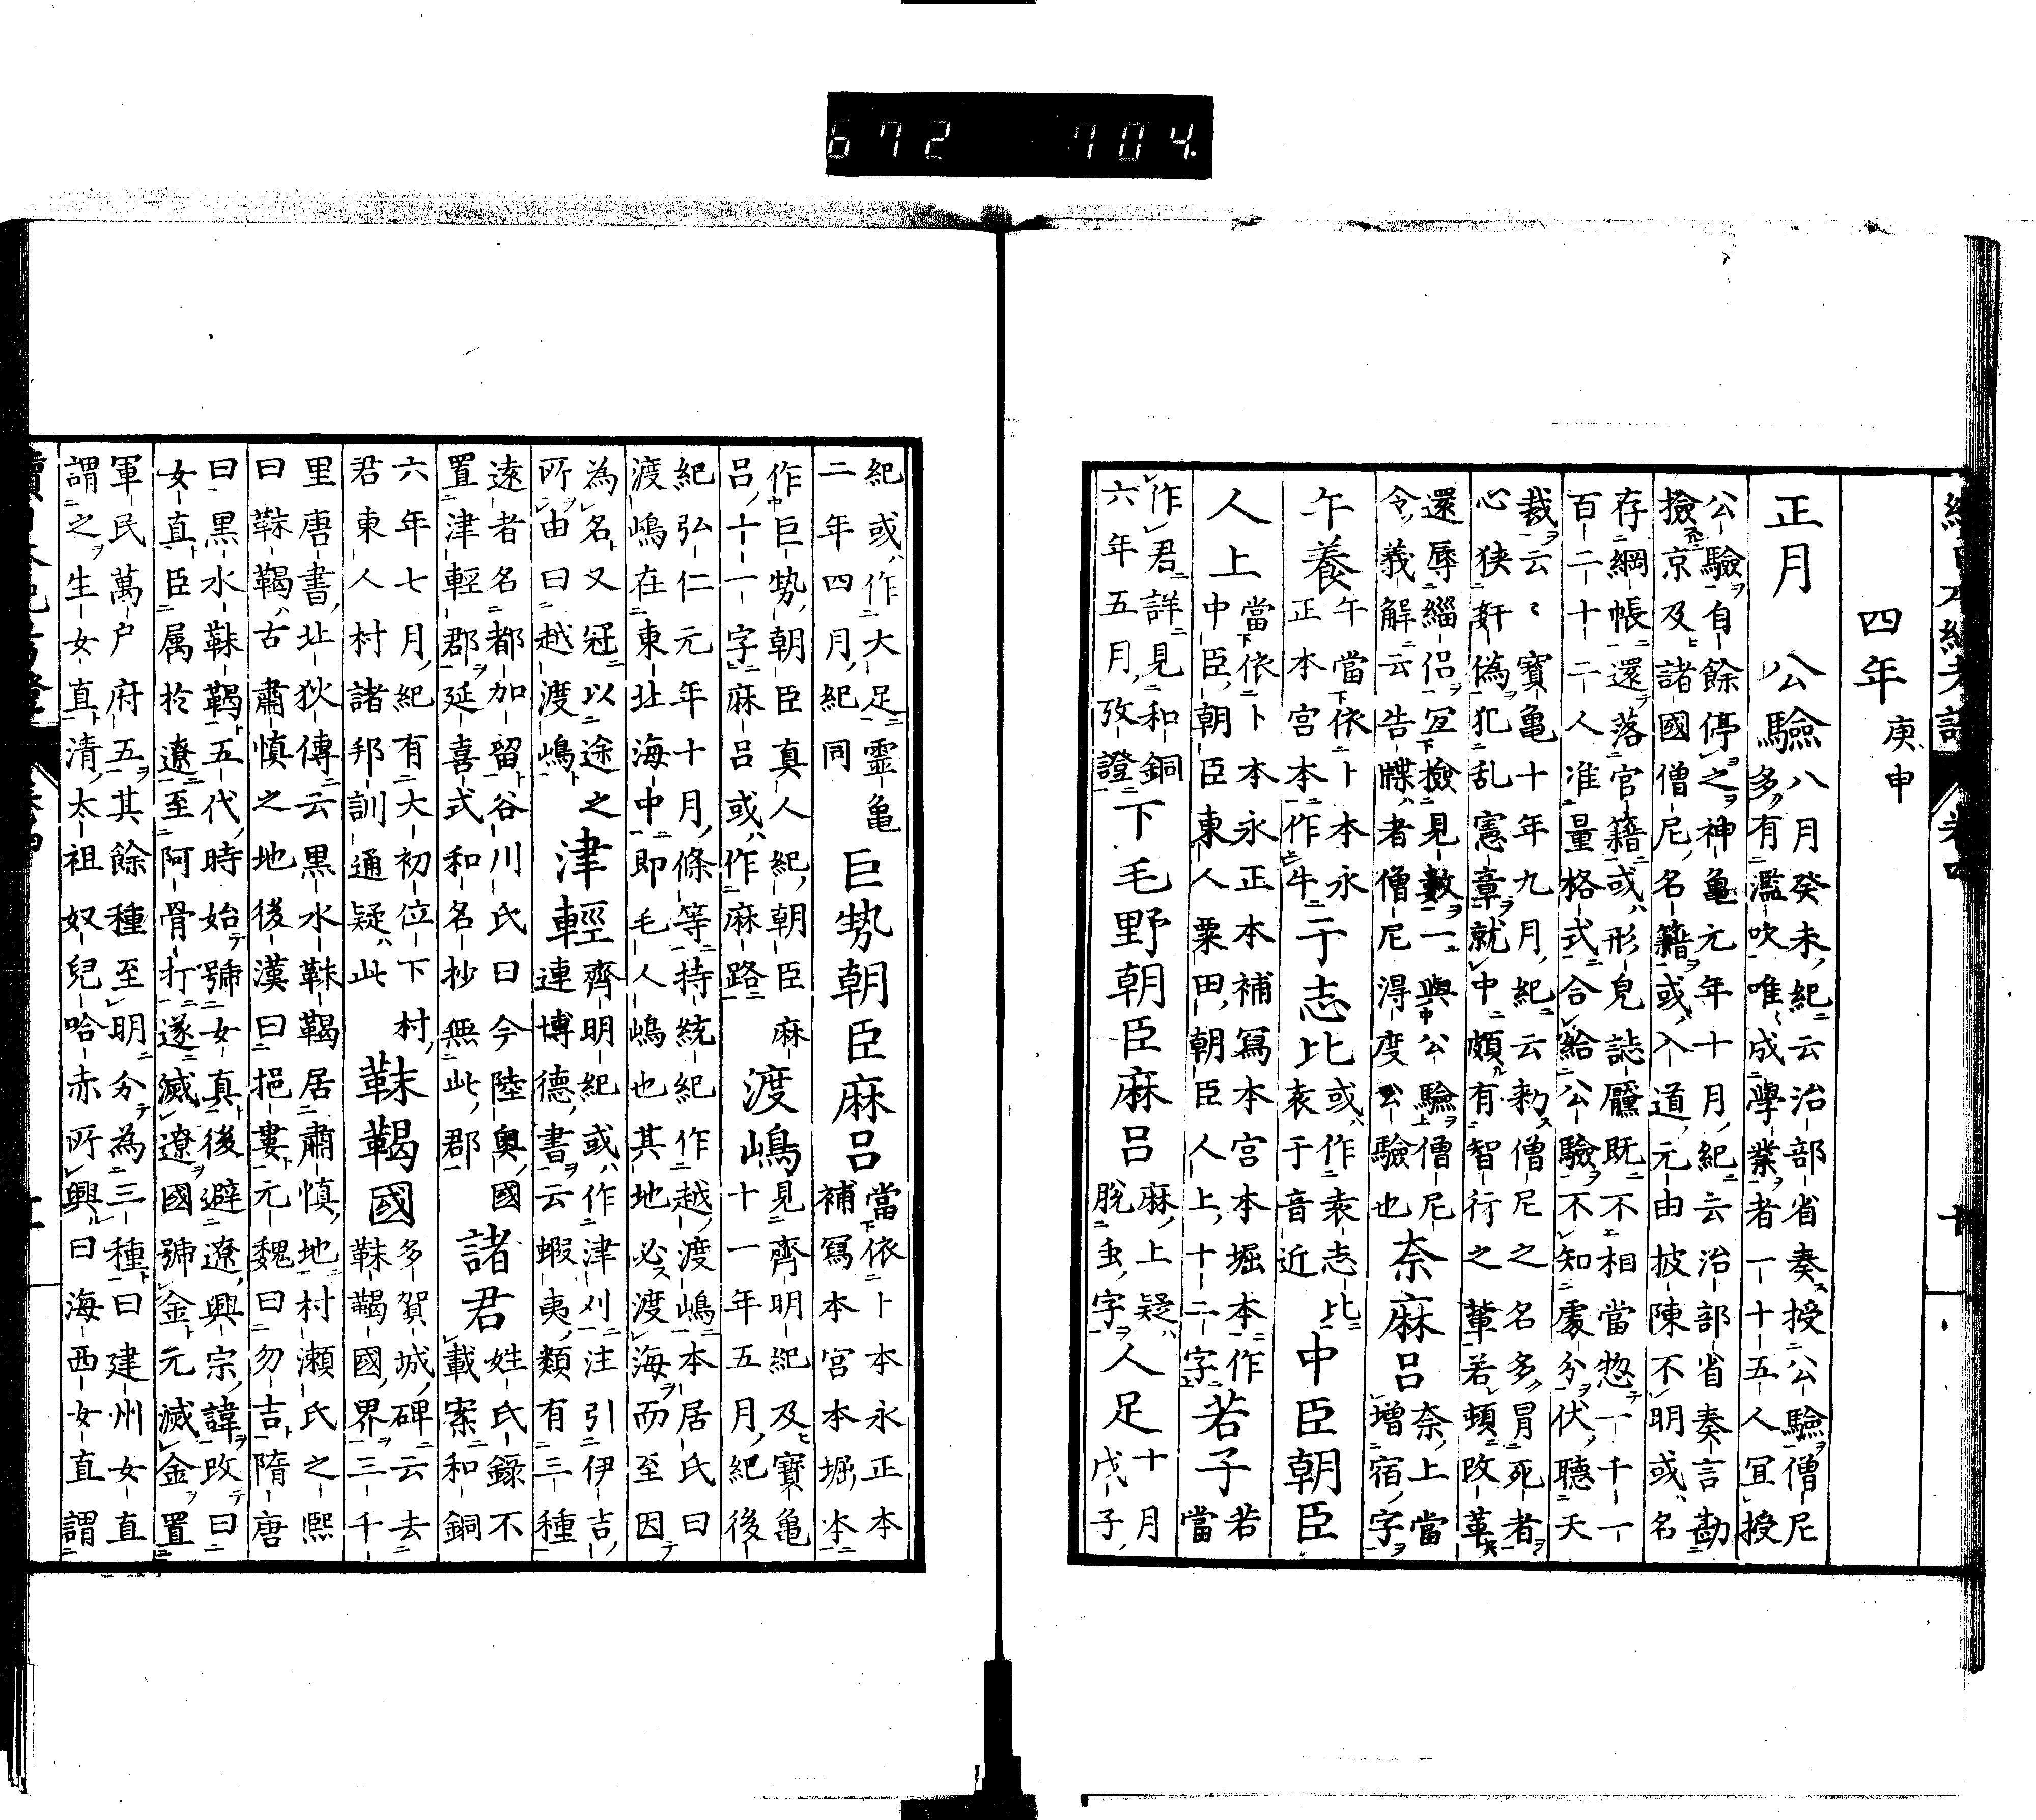 672 704.
四年 庚申
正月 公驗 八月癸未紀云治部省奏授公驗僧尼
多有濫吹唯成學業者一十五人宜授
公驗自餘停之神亀元年十月紀云治部省奏言勘
撿京及諸國僧尼名籍或入道元由披陳不明或名
存綱帳還落官籍或形皃誌黶既不相當惣一千一
百二十二人准量格式合給公驗不知處分伏聽天
裁云〻寶亀十年九月紀云勅僧尼之名多冒死者
心狭奸偽犯乱憲章就中頗有智行之輩若頓改革
還辱緇侶宜撿見數一與公驗僧尼
令義解云告牒者僧尼得度公驗也
奈麻呂 奈上當
増宿字
午養 午當依卜本永
正本宮本作牛
于志比 或作袁志比
袁于音近
中臣朝臣
人上 當依卜本永正本補寫本宮本堀本作
中臣朝臣東人粟田朝臣人上十二字
若子 若
當
作君詳見和銅
六年五月攷證
下毛野朝臣麻呂 麻上疑
脫虫字
人足 十月
戊子
紀或作大足靈亀
二年四月紀同
巨勢朝臣麻呂 當依卜本永正本
補寫本宮本堀本
作巨勢朝臣真人紀朝臣麻
呂十一字麻呂或作麻路
渡嶋 見齊明紀及寶亀
十一年五月紀後
紀弘仁元年十月條等持統紀作越渡嶋本居氏曰
渡嶋在東北海中即毛人嶋也其地必渡海而至因
為名又冠以途之
所由曰越渡嶋
津輕 齊明紀或作津刈注引伊吉
連博德書云蝦夷類有三種
遠者名都加留谷川氏曰今陸奥國
置津輕郡延喜式和名抄無此郡
諸君 姓氏錄不
載案和銅
六年七月紀有大初位下村
君東人村諸邦訓通疑此
靺鞨國 多賀城碑云去
靺鞨國界三千
里唐書北狄傳云黒水靺鞨居肅慎地村瀬氏之熙
曰靺鞨古肅慎之地後漢曰挹婁元魏曰勿吉隋唐
曰黒水靺鞨五代時始號女真後避遼興宗諱改曰
女直臣属於遼至阿骨打遂滅遼國號金元滅金置
軍民萬户府五其餘種至明分為三種曰建州女直
謂之生女直清太祖奴兒哈赤所興曰海西女直謂